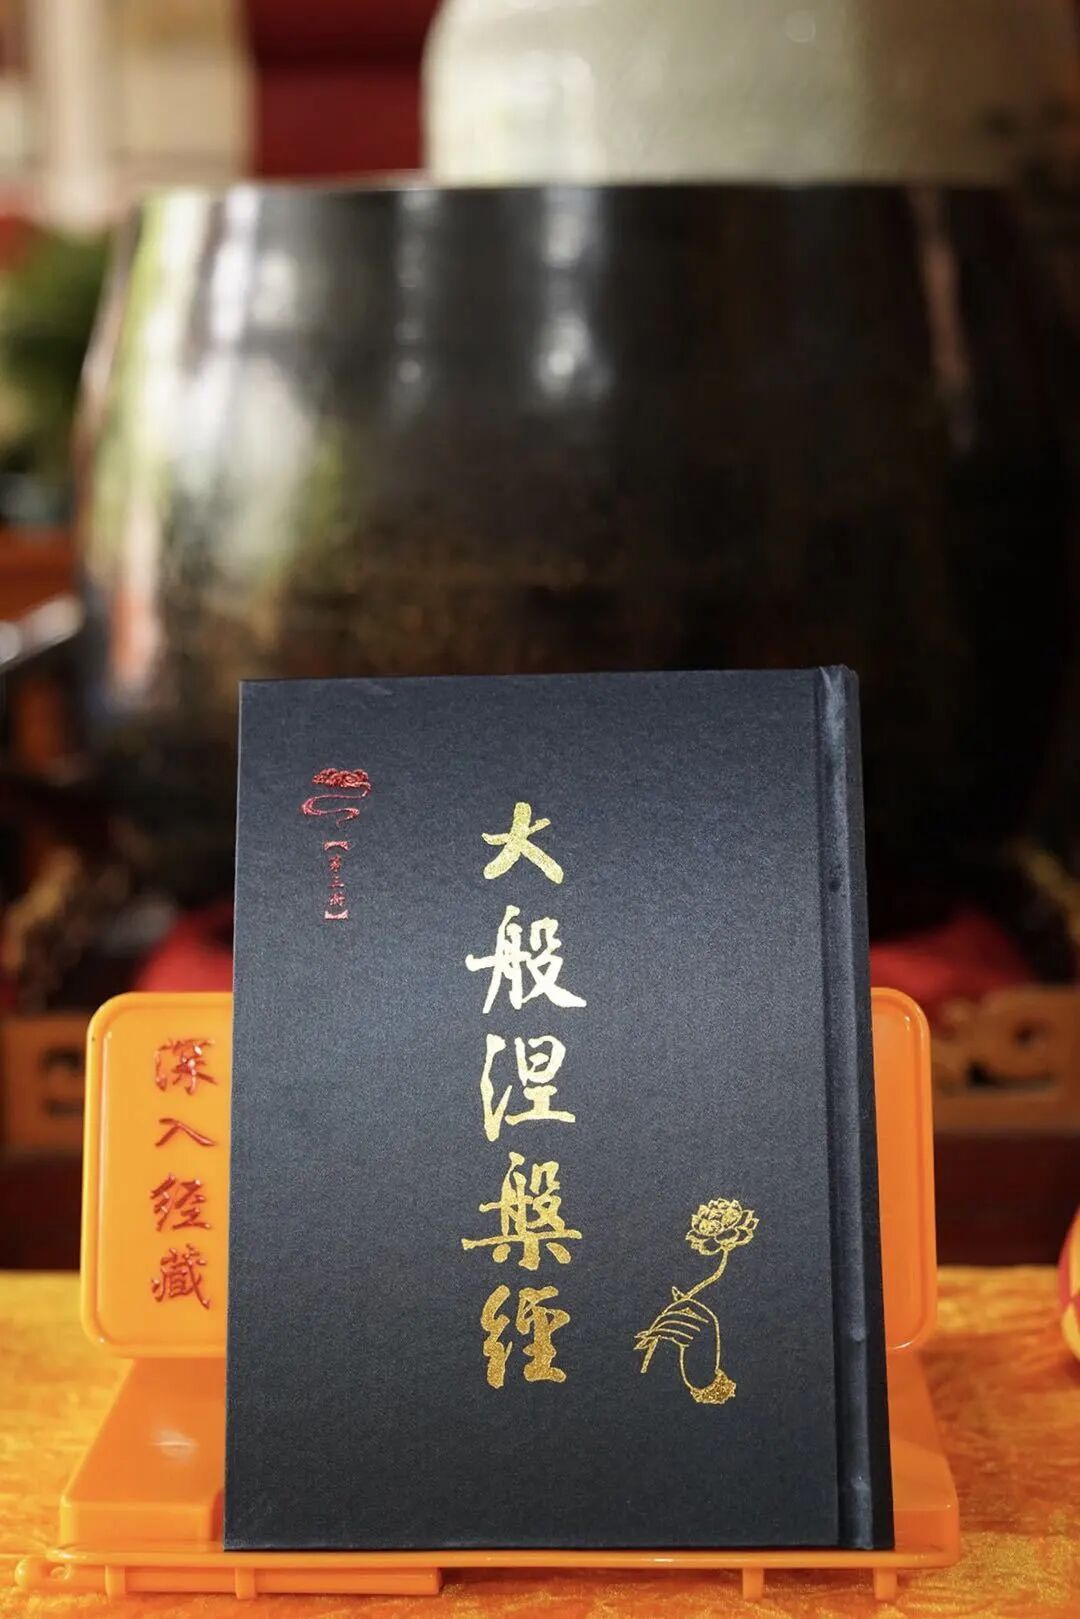 大般涅槃經
【第三册】
深入经藏